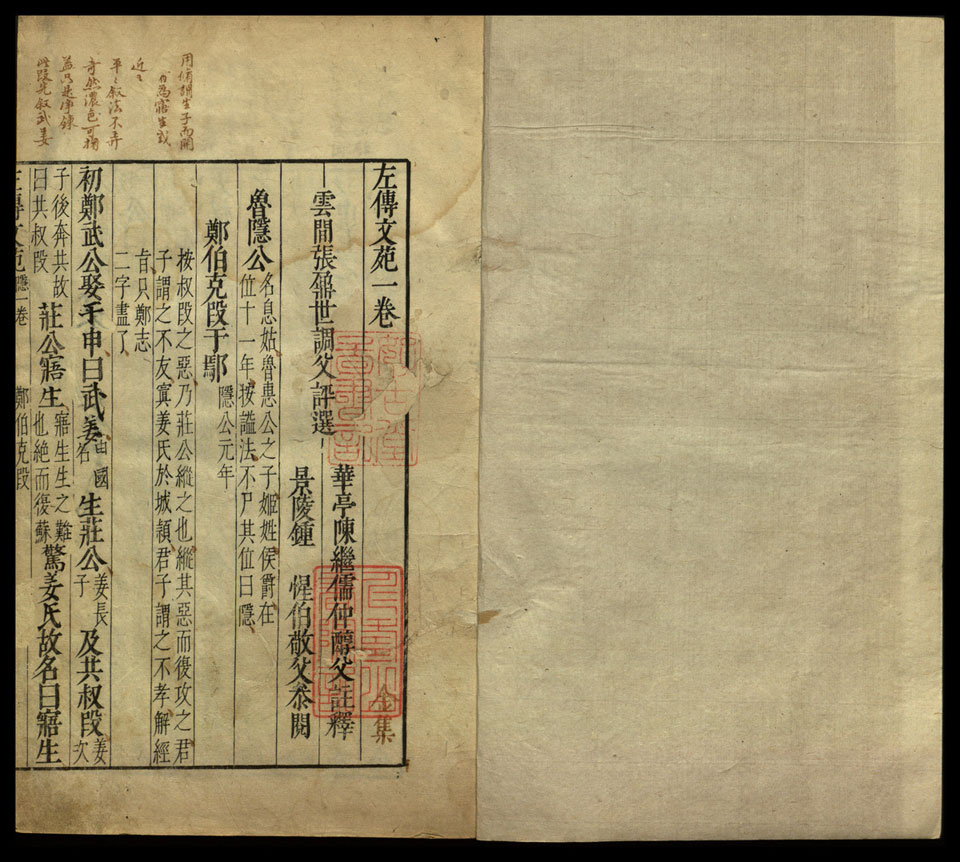 左傳文苑一卷
雲間張鼐世調父評選
華亭陳繼儒仲醇父註釋
景陵鍾 惺伯敬父叅閱
魯隱公
名息姑魯惠公之子姬姓侯爵在
位十一年按謚法不尸其位曰隱
鄭伯克段于鄢
隱公元年
按叔段之惡乃莊公縱之也縱其惡而後攻之君
子謂之不友寘姜氏於城潁君子謂之不孝解經
者只鄭志
二字盡了
初鄭武公娶于申曰武姜
申國
名
生莊公
姜長
子
及共叔段
姜次
子後奔共故
曰共叔段
莊公寤生
寤生生之難
也絕而復蘇
驚姜氏故名曰寤生
左傳文苑
隱一卷
鄭伯克段
金集
近之
平之叙法不弃
奇然濃色可掬
益只是淨鍊
此段先叙武姜